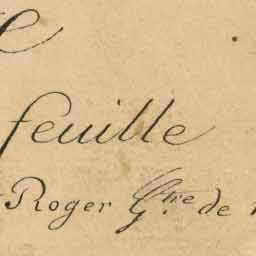 feuille
Roger G.tre de